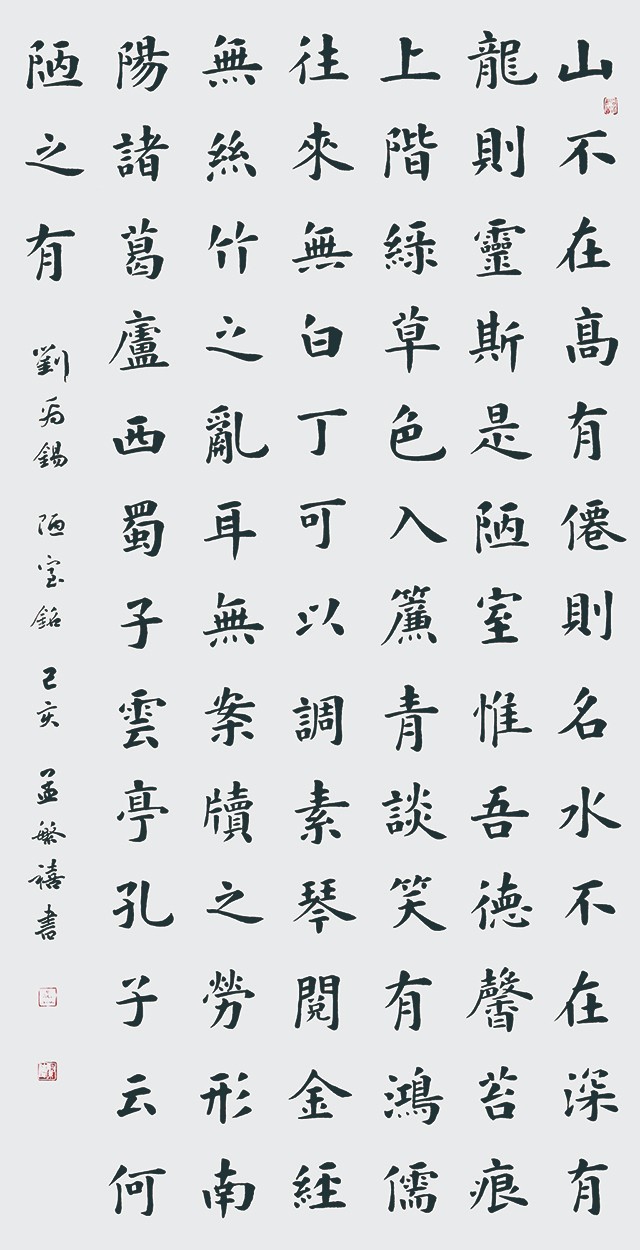 山不在髙有僊則名水不在深有
龍則靈斯是陋室惟吾德馨苔痕
上階緑草色入簾青談笑有鴻儒
往來無白丁可以調素琴閱金經
無絲竹之亂耳無案牘之勞形南
陽諸葛廬西蜀子雲亭孔子云何
陋之有 劉禹錫 陋室銘 己亥 孟繁禧書